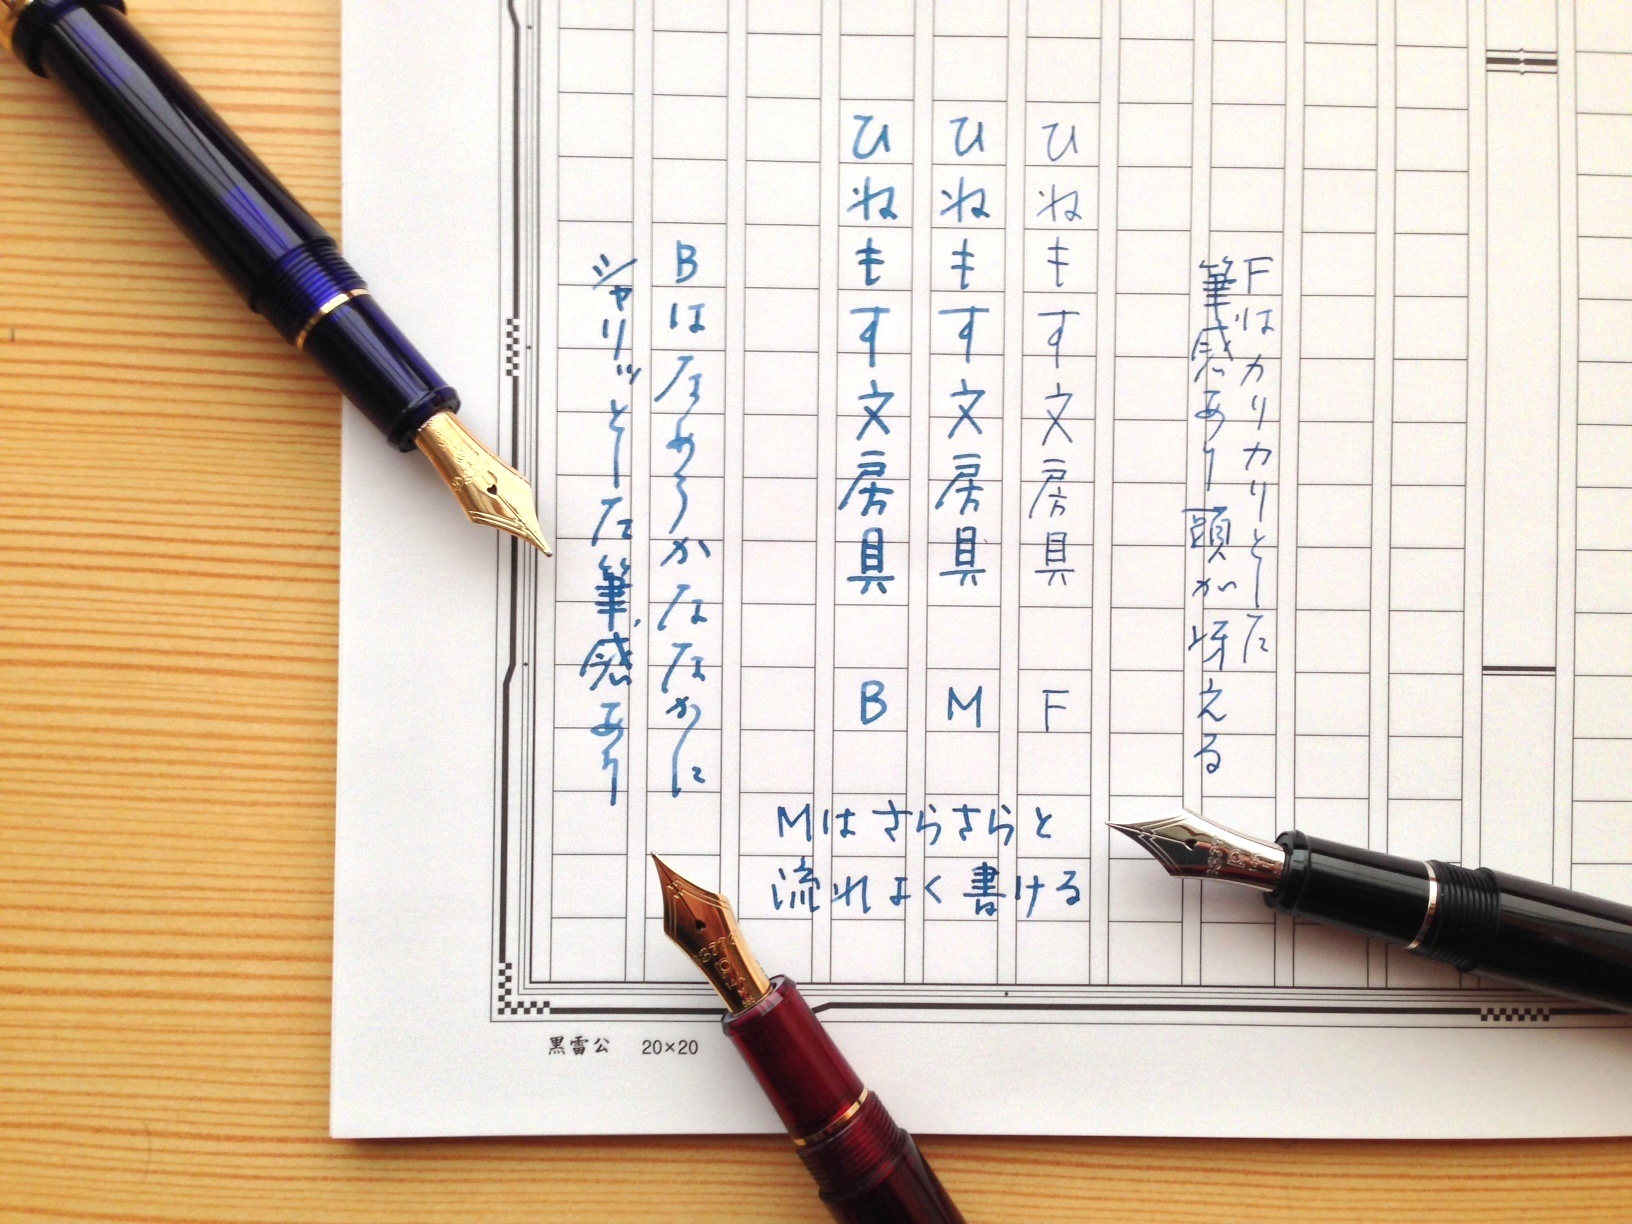 Fはカリカリとした
筆感あり頭が冴える
ひねもす文房具 F
ひねもす文房具 M
ひねもす文房具 B
Mはさらさらと
流れよく書ける
Bはなめらかななかに
シャリッとした筆感あり
黒雷公 20×20